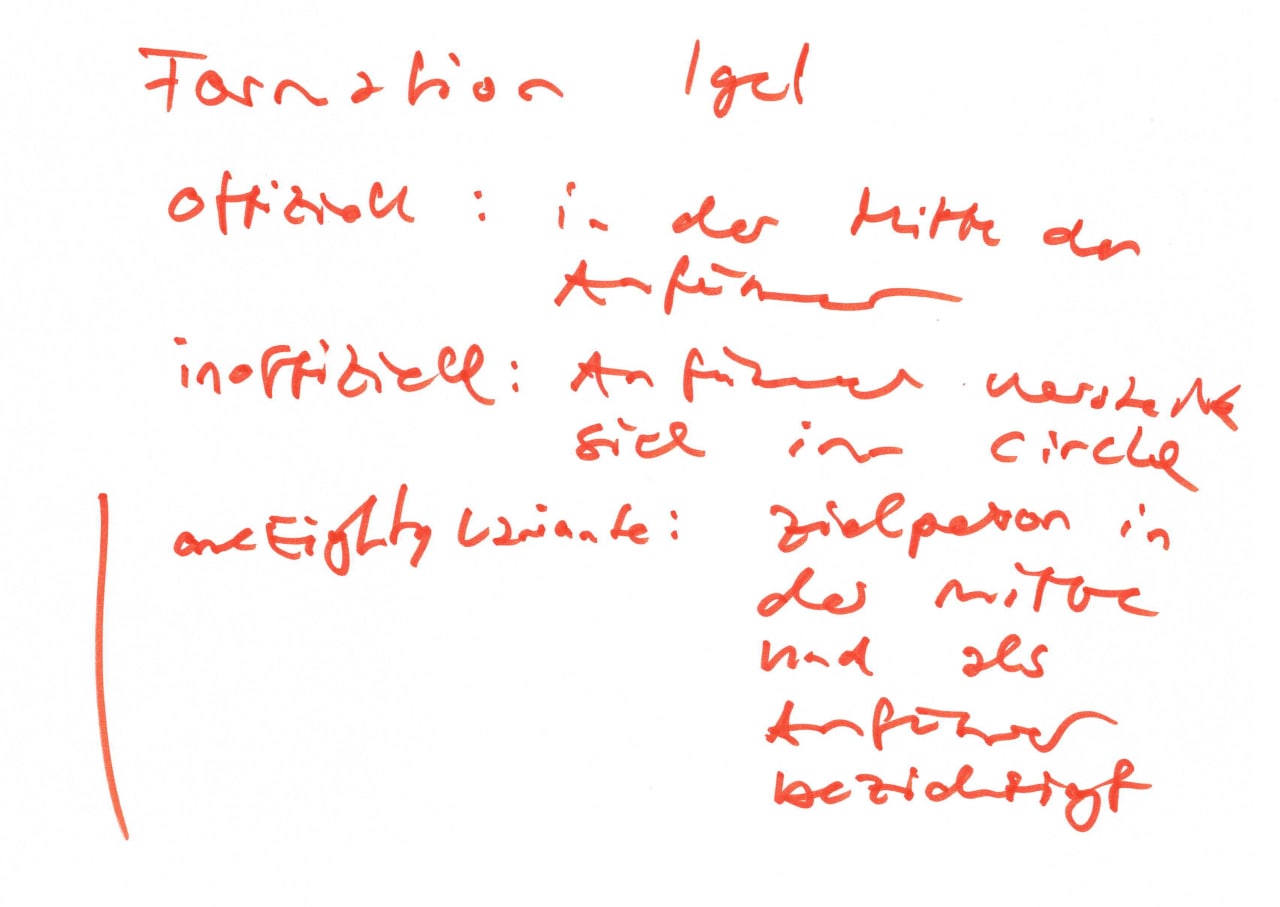 Formation Igel
offiziell : in der Mitte der
Anführer
inoffiziell : Anführer versteckt
sich im Circle
oneEighty Variante : Zielperson in
der Mitte
und als
Anführer
bezichtigt